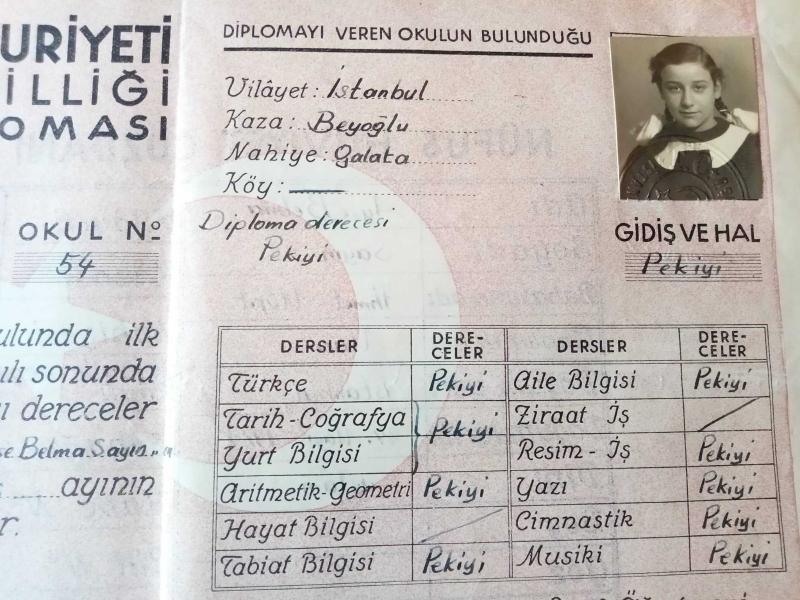 URİYETİ
İLLİĞİ
OMASI
OKUL Nº
54
ulunda ilk
ılı sonunda
ı dereceler
se Belma Sayın
ayının
r.
DİPLOMAYI VEREN OKULUN BULUNDUĞU
Vilâyet: İstanbul
Kaza: Beyoğlu
Nahiye: Galata
Köy:
Diploma derecesi
Pekiyi
GİDİŞ VE HAL
Pekiyi
DERSLER DERE-CELER DERSLER DERE-CELER
Türkçe Pekiyi Aile Bilgisi Pekiyi
Tarih-Coğrafya Pekiyi Ziraat İş
Yurt Bilgisi Resim-İş Pekiyi
Aritmetik-Geometri Pekiyi Yazı Pekiyi
Hayat Bilgisi Cimnastik Pekiyi
Tabiat Bilgisi Pekiyi Musiki Pekiyi